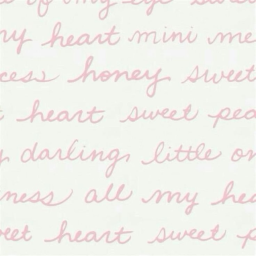 of my eye
my heart mini me
cess honey sweet
heart sweet pea
darling little on
ness all my hea
eet heart sweet p